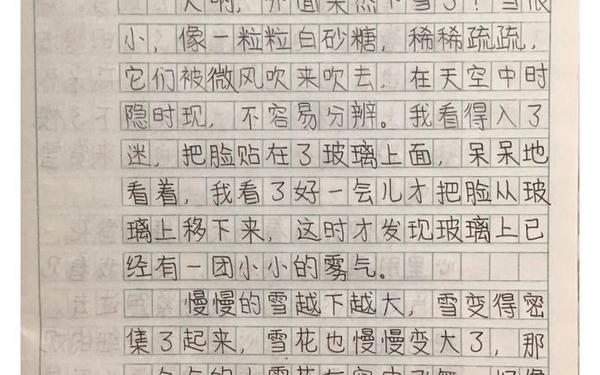 天啊，外面果然下雪了！雪很
小，像一粒粒白砂糖，稀稀疏疏，
它们被微风吹来吹去，在天空中时
隐时现，不容易分辨。我看得入了
迷，把脸贴在了玻璃上面，呆呆地
看着，我看了好一会儿才把脸从玻
璃上移下来，这时才发现玻璃上已
经有一团小小的雾气。
慢慢的雪越下越大，雪变得密
集了起来，雪花也慢慢变大了，那